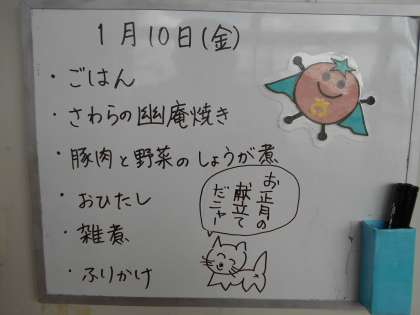 1月10日(金)
・ごはん
・さわらの幽庵焼き
・豚肉と野菜のしょうが煮
・おひたし
・雑煮
・ふりかけ
お正月の
献立て
だニャー